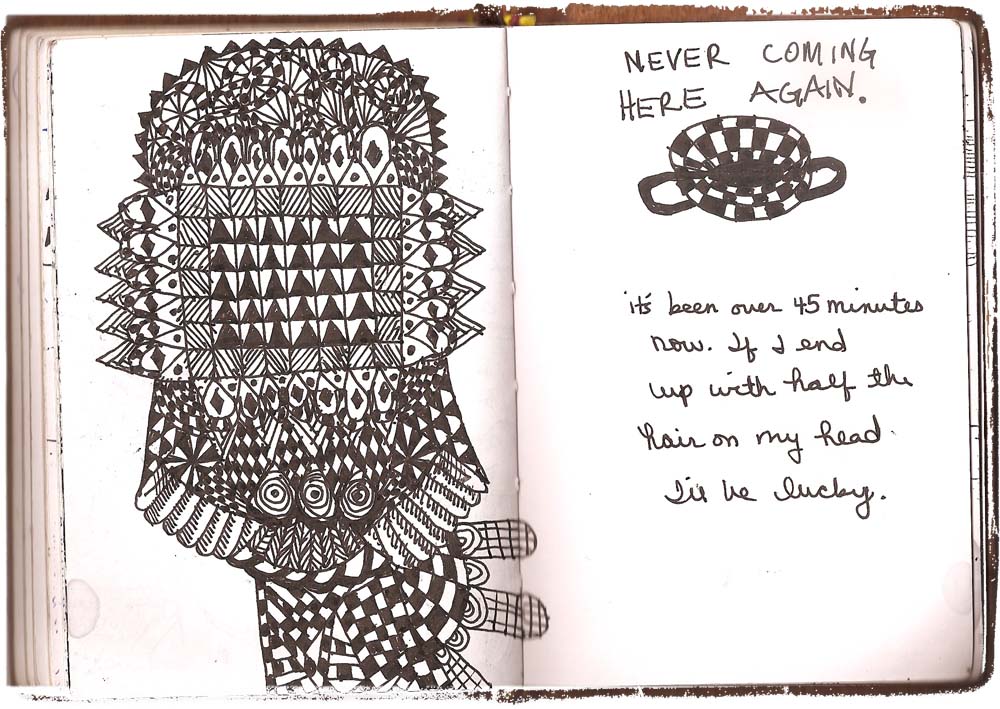 NEVER COMING
HERE AGAIN.
it's been over 45 minutes
now. If I end
up with half the
hair on my head
I'll be lucky.